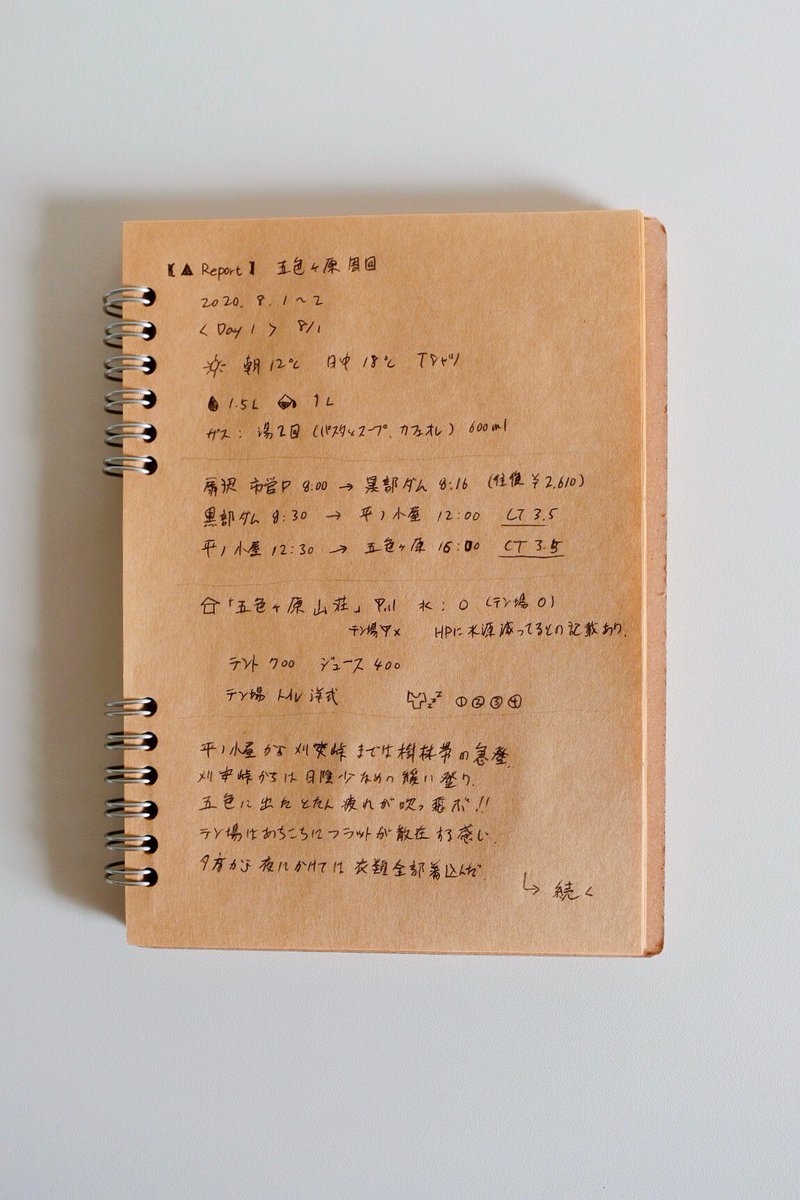 【▲ Report】 五色ヶ原 周回
2020. 8. 1 〜 2
〈 Day 1 〉 8/1
朝 12℃ 日中 18℃ Tシャツ
1.5L 1L
ガス : 湯2回 (パスタ&スープ、カフェオレ) 600ml
扇沢 市営P 8:00 → 黒部ダム 8:16 (往復 ¥2,610)
黒部ダム 8:30 → 平ノ小屋 12:00 CT 3.5
平ノ小屋 12:30 → 五色ヶ原 16:00 CT 3.5
「五色ヶ原山荘」 水 : ○ (テン場 ○)
テン場 × HPに水源減ってるとの記載あり.
テント 700 ジュース 400
テン場 トイレ 洋式 zzz ①②③④
平ノ小屋から刈安峠までは樹林帯の急登.
刈安峠からは日陰少なめの緩い登り.
五色に出たとたん疲れが吹っ飛ぶ!!
テン場はあちこちにフラットが散在する感じ.
夕方から夜にかけては衣類全部着込んだ.
↳ 続く